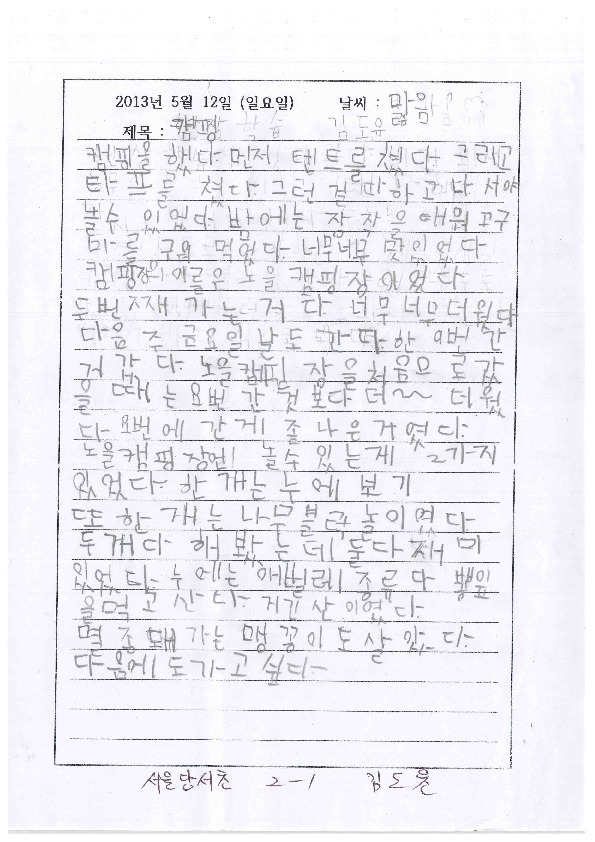 2013년 5월 12일 (일요일) 날씨 : 맑음
제목 : 캠핑 학습 김도윤
캠핑을 했다 먼저 텐트를 쳤다 그리고
타프를 쳤다 그런 걸 다하고 나서야
놀수 있었다 밤에는 장작을 태워 고구
마를 구워 먹었다 너무너무 맛있었다
캠핑장 이름은 노을 캠핑장이었다
두번째 가는 거다 너무 너무 더웠다
다음 주 금요일 날도 간다 한 번 간
거 같다 노을캠핑 장을 처음으로 갔
을 때는 요번 간 것 보다 더~ 더웠
다 요번에 간게 좀 나은거였다
노을캠핑장에 놀수 있는게 2가지
있었다 한 개는 누에 보기
또 한 개는 나무블럭 놀이였다
두개 다 해 봤는데 둘다 재미
있었다 누에는 애벌레 종류다 뽕잎
을먹고 산다 거긴 산이었다
멸종돼 가는 맹꽁이도 살았다
다음에 도가고 싶다
서울당서초 2-1 김도윤